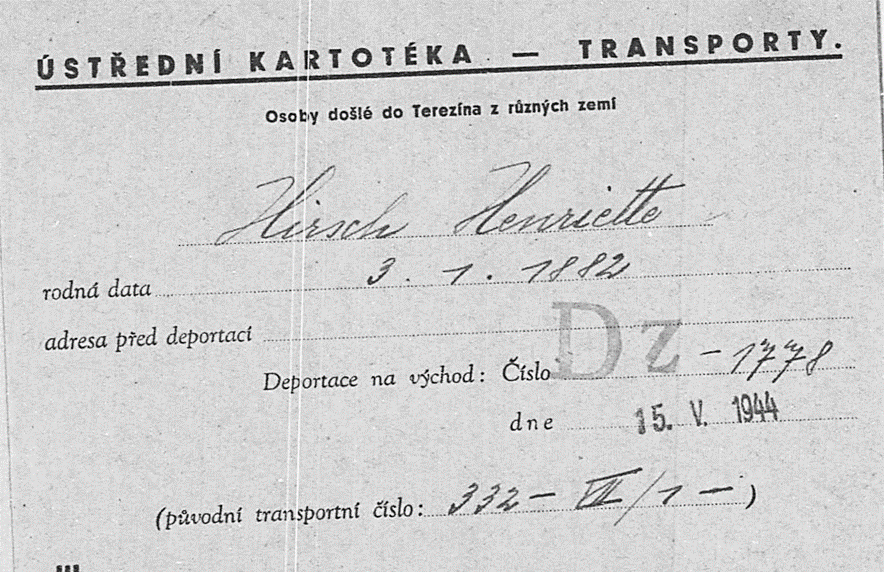 ÚSTŘEDNÍ KARTOTÉKA — TRANSPORTY.
Osoby došlé do Terezína z různých zemí
Hirsch Henriette
rodná data 3. 1. 1882
adresa před deportací
Deportace na východ: Číslo Dz - 1778
dne 15. V. 1944
(původní transportní číslo: 332 - VII/1 - )